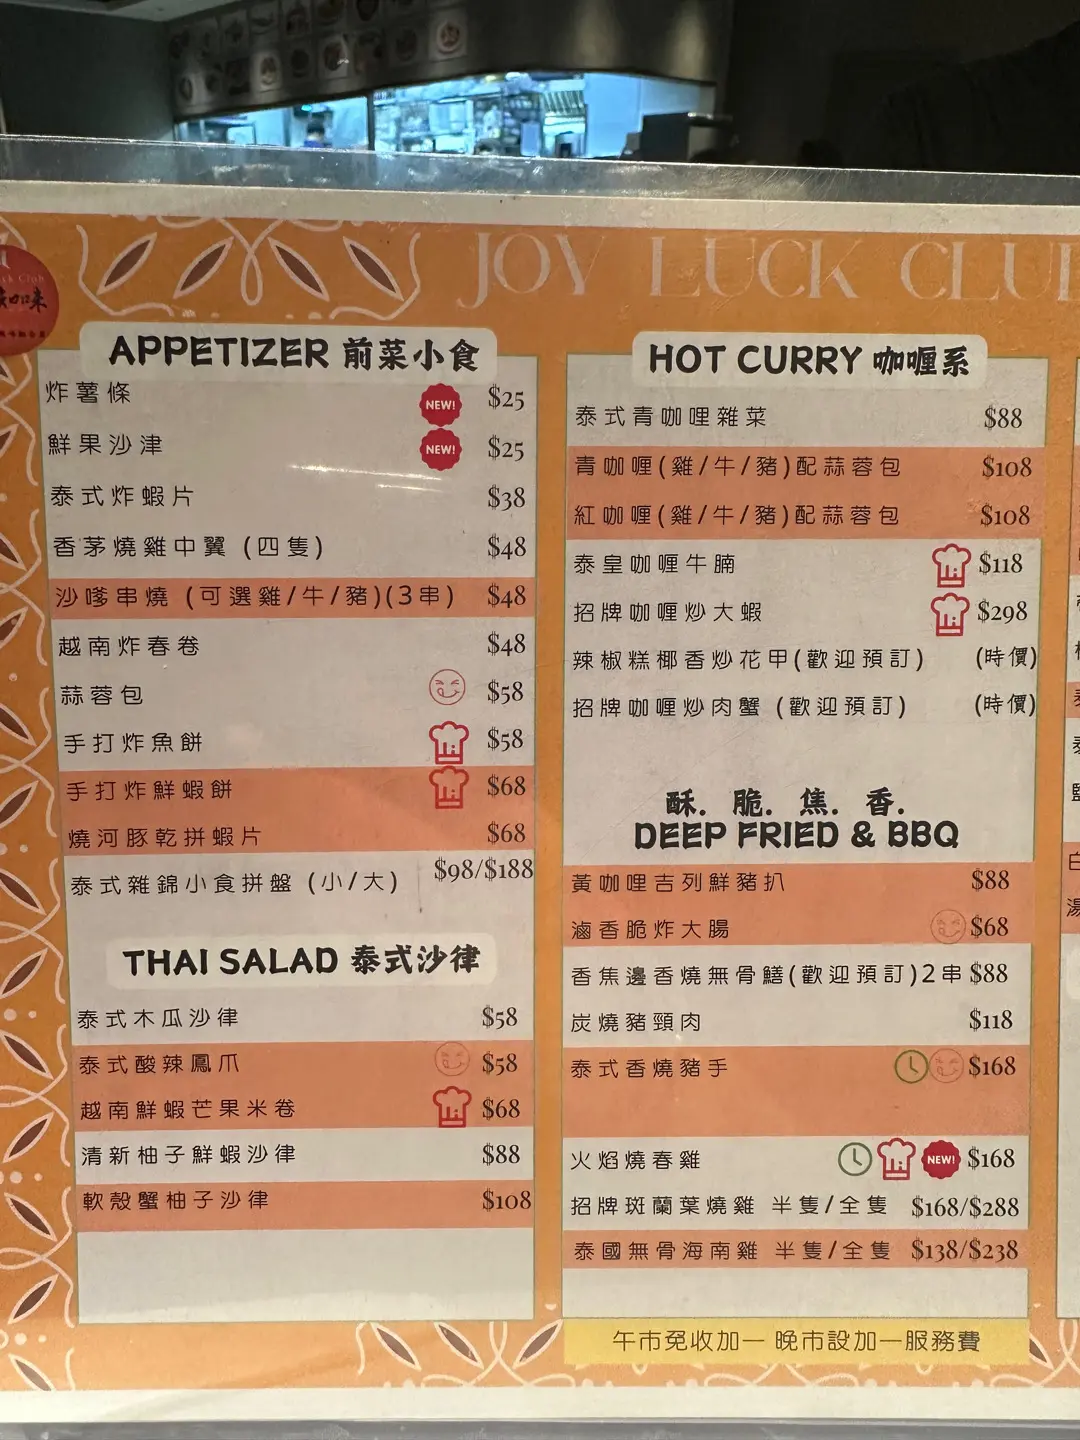 JOY LUCK CLUB
APPETIZER 前菜小食
炸薯條 NEW! $25
鮮果沙津 NEW! $25
泰式炸蝦片 $38
香茅燒雞中翼 (四隻) $48
沙嗲串燒 (可選雞/牛/豬)(3串) $48
越南炸春卷 $48
蒜蓉包 $58
手打炸魚餅 $58
手打炸鮮蝦餅 $68
燒河豚乾拼蝦片 $68
泰式雜錦小食拼盤 (小/大) $98/$188
THAI SALAD 泰式沙律
泰式木瓜沙律 $58
泰式酸辣鳳爪 $58
越南鮮蝦芒果米卷 $68
清新柚子鮮蝦沙律 $88
軟殼蟹柚子沙律 $108
HOT CURRY 咖喱系
泰式青咖哩雜菜 $88
青咖喱(雞/牛/豬)配蒜蓉包 $108
紅咖喱(雞/牛/豬)配蒜蓉包 $108
泰皇咖喱牛腩 $118
招牌咖喱炒大蝦 $298
辣椒糕椰香炒花甲(歡迎預訂) (時價)
招牌咖喱炒肉蟹 (歡迎預訂) (時價)
酥. 脆. 焦. 香.
DEEP FRIED & BBQ
黃咖哩吉列鮮豬扒 $88
滷香脆炸大腸 $68
香焦邊香燒無骨鱔(歡迎預訂)2串 $88
炭燒豬頸肉 $118
泰式香燒豬手 $168
火焰燒春雞 NEW! $168
招牌斑蘭葉燒雞 半隻/全隻 $168/$288
泰國無骨海南雞 半隻/全隻 $138/$238
午市免收加一 晚市設加一服務費